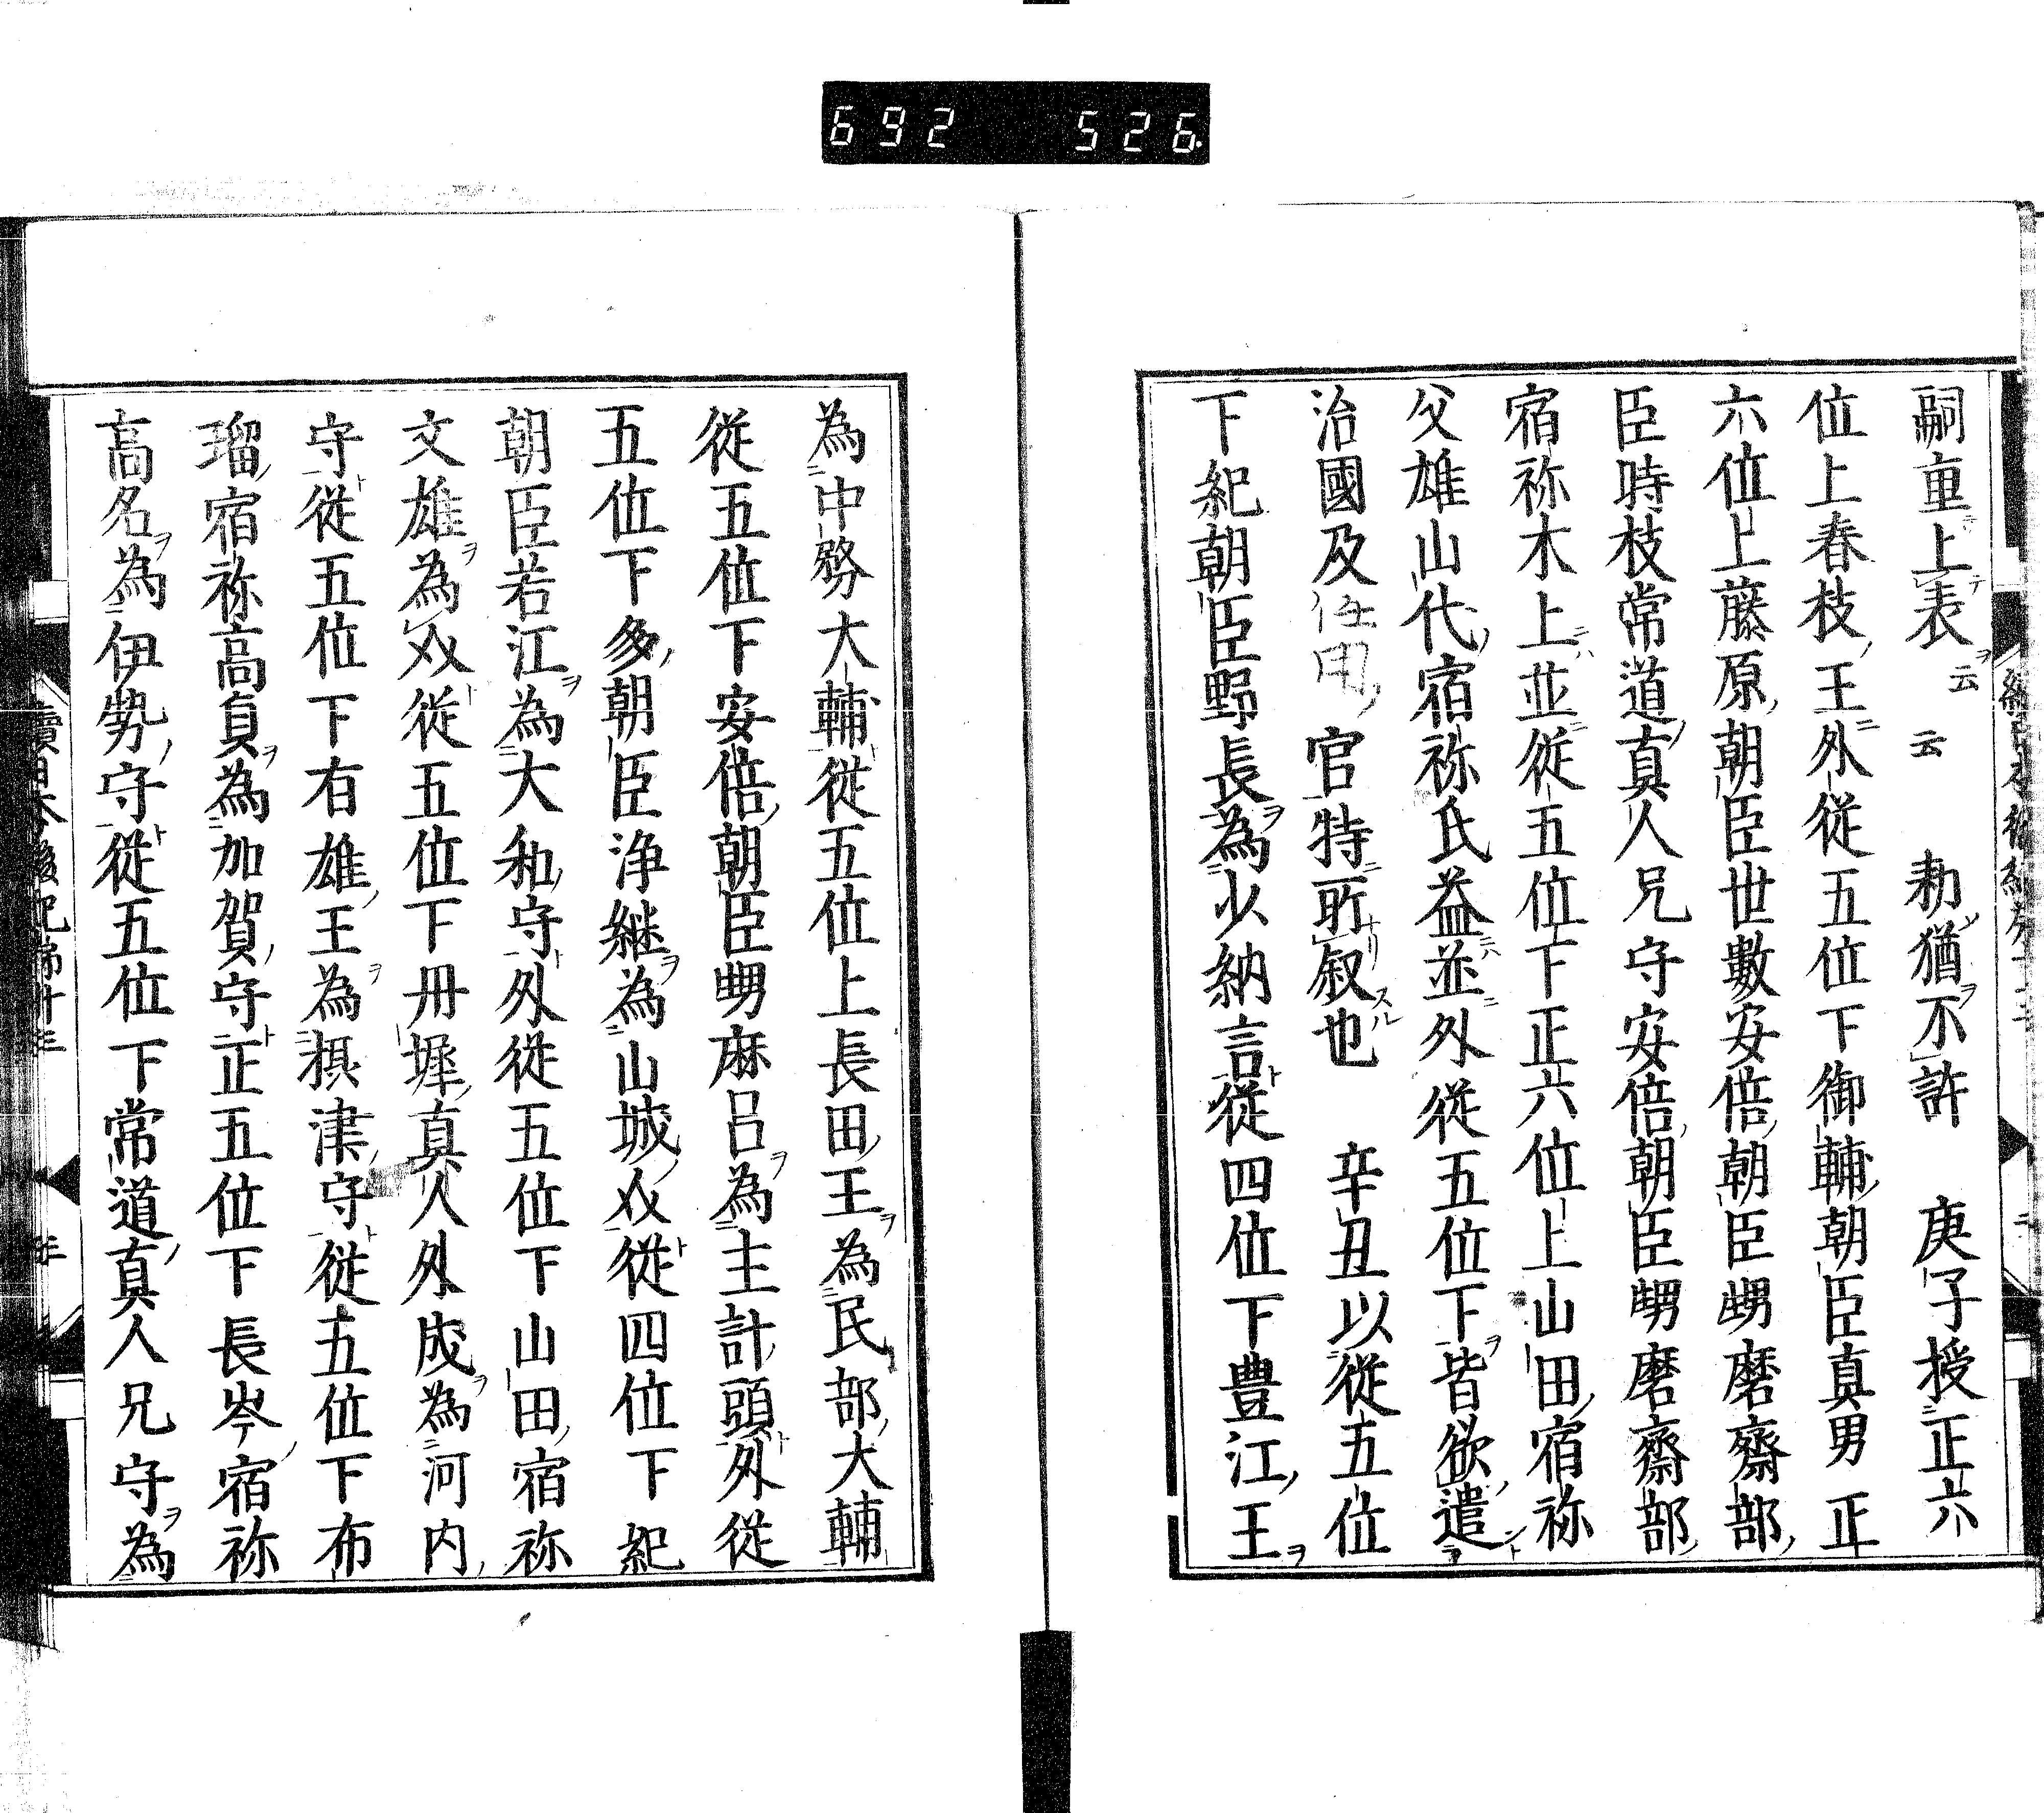 692 526
嗣重上表云云 勅猶不許 庚子授正六
位上春枝王外従五位下御輔朝臣真男正
六位上藤原朝臣世數安倍朝臣甥磨齋部
臣時枝常道真人兄守安倍朝臣甥磨齋部
宿祢木上並従五位下正六位上山田宿祢
父雄山代宿祢氏益並外従五位下皆欲遣
治國及任用官特所叙也 辛丑以従五位
下紀朝臣野長為少納言従四位下豊江王
為中務大輔従五位上長田王為民部大輔
従五位下安倍朝臣甥麻呂為主計頭外従
五位下多朝臣浄継為山城介従四位下紀
朝臣若江為大和守外従五位下山田宿祢
文雄為介従五位下丹墀真人外成為河内
守従五位下有雄王為摂津守従五位下布
瑠宿祢高貞為加賀守正五位下長岑宿祢
高名為伊勢守従五位下常道真人兄守為
續日本後紀第十三